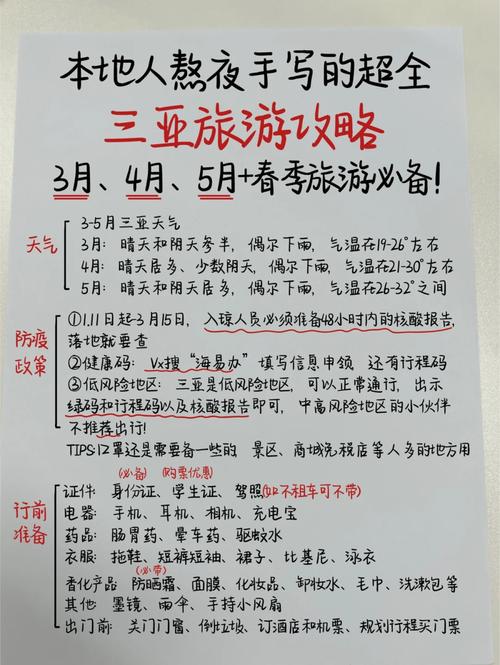 本地人熬夜手写的超全
三亚旅游攻略
3月、4月、5月+春季旅游必备!
天气
3-5月三亚天气
3月: 晴天和阴天参半, 偶尔下雨, 气温在19-26°左右
4月: 晴天居多、少数阴天, 偶尔下雨, 气温在21-30°左右
5月: 晴天和阴天居多, 偶尔下雨, 气温在26-32°之间
防疫政策
①1.11日起-3月15日, 入琼人员必须准备48小时内的核酸报告,
落地就要查
②健康码: Vx搜“海易办”填写信息申领 还有行程码
③低风险地区: 三亚是低风险地区, 可以正常通行, 出示
绿码和行程码以及核酸报告即可, 中高风险地区的小伙伴
不推荐出行!
TIPS:口罩还是需要备一些的 景区、商城免税店等人多的地方用
行前准备
(必备) (购票优惠)
证件: 身份证、学生证、驾照(如不租车可不带)
电器: 手机、耳机、相机、充电宝
药品: 肠胃药、晕车药、驱蚊水
衣服: 拖鞋、短裤短袖、裙子、比基尼、泳衣
(必带)
香化产品: 防晒霜、面膜、化妆品、卸妆水、毛巾、洗漱包等
其他: 墨镜、雨伞、手持小风扇
出门前: 关门门窗、倒垃圾、订酒店和机票、规划行程买门票